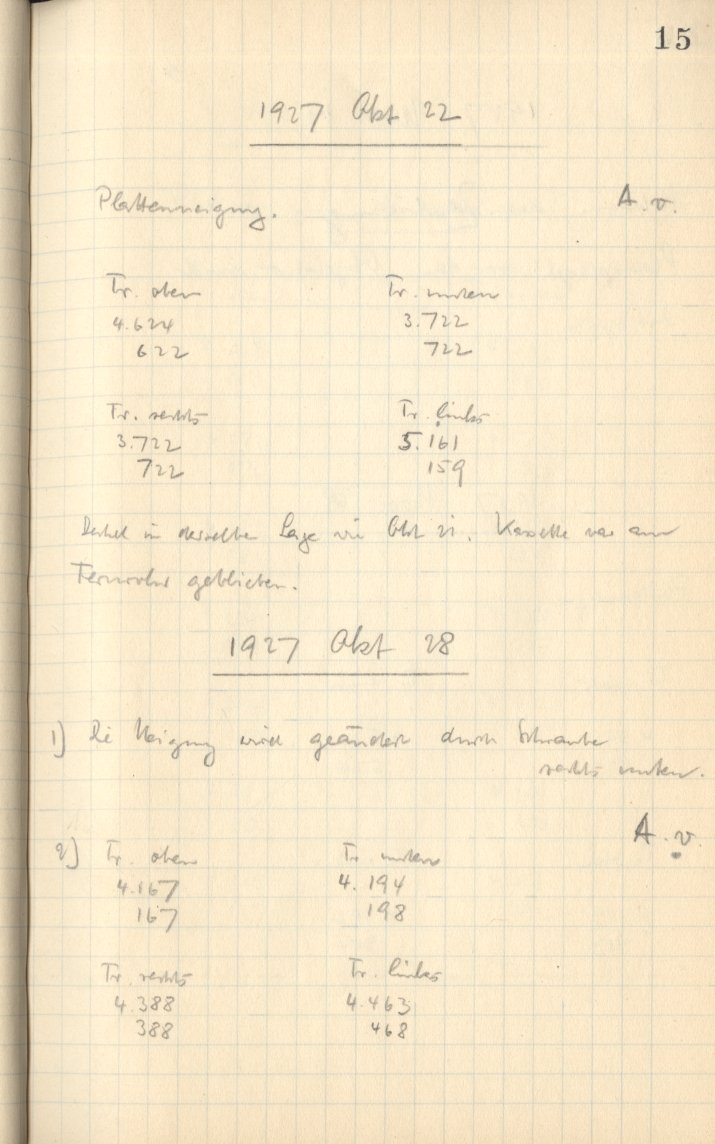 15
1927 Okt 22
Plattenneigung. A. v.
Tr. oben Tr. unten
4.624 3.722
622 722
Tr. rechts Tr. links
3.722 5.161
722 159
Deckel in derselben Lage wie Okt 21. Kassette war am
Fernrohr geblieben.
1927 Okt 28
1) Die Neigung wird geändert durch Schraube
rechts unten.
A. v.
2) Tr. oben Tr. unten
4.167 4.194
167 198
Tr. rechts Tr. links
4.388 4.463
388 468